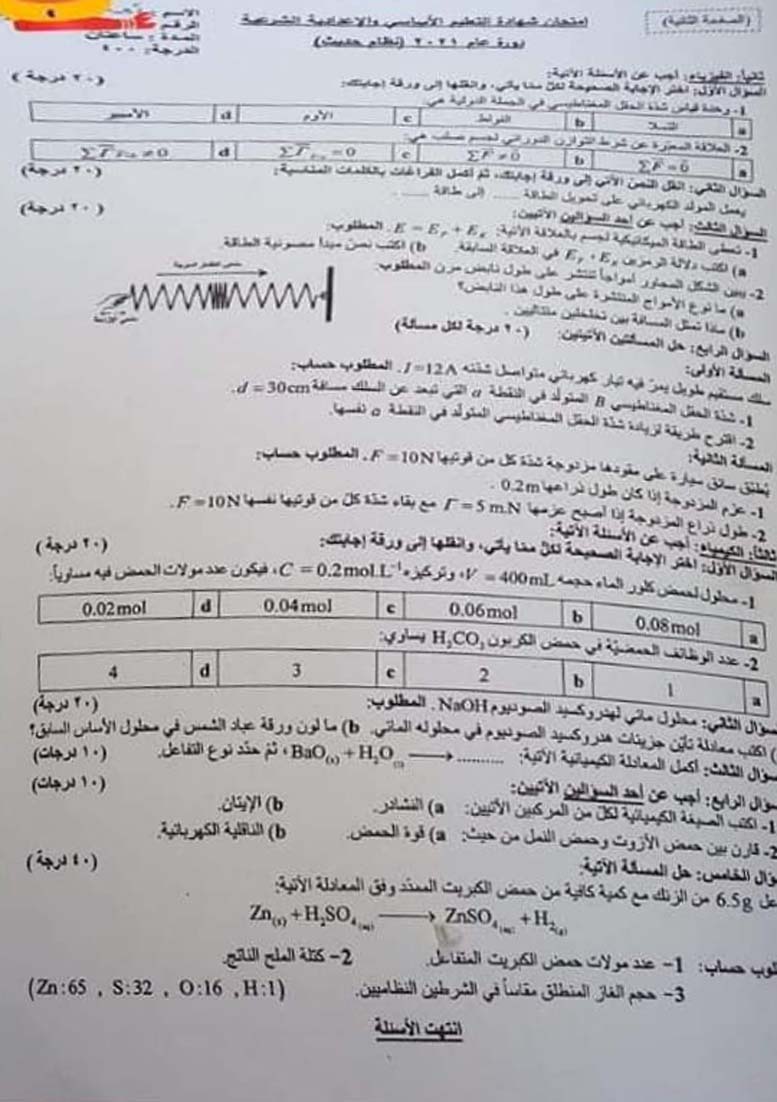 (الصفحة الثانية)
امتحان شهادة التعليم الأساسي والإعدادية الشرعية
دورة عام ٢٠٢١ (نظام حديث)
الاسم
الرقم
المدة : ساعتان
الدرجة: ٤٠٠
ثانياً: الفيزياء: أجب عن الأسئلة الآتية:
السؤال الأول: اختر الإجابة الصحيحة لكل مما يأتي، وانقلها إلى ورقة إجابتك: (٢٠ درجة)
1- وحدة قياس شدة الحقل المغناطيسي في الجملة الدولية هي:
a التسلا b الواط c الأوم d الأمبير
2- العلاقة المعبّرة عن شرط التوازن الدوراني لجسم صلب هي:
a ΣF = 0 b ΣF ≠ 0 c ΣΓ = 0 d ΣΓ ≠ 0
السؤال الثاني: انقل النص الآتي إلى ورقة إجابتك، ثم أكمل الفراغات بالكلمات المناسبة: (٢٠ درجة)
يعمل المولد الكهربائي على تحويل الطاقة ...... إلى طاقة ...... .
السؤال الثالث: أجب عن أحد السؤالين الآتيين: (٢٠ درجة)
1- تعطى الطاقة الميكانيكية لجسم بالعلاقة الآتية: E = Eₚ + Eₖ . المطلوب:
a) اكتب دلالة الرمزين Eₚ ، Eₖ في العلاقة السابقة. b) اكتب نص مبدأ مصونية الطاقة.
2- يبين الشكل المجاور أمواجاً تنتشر على طول نابض مرن المطلوب:
a) ما نوع الأمواج المنتشرة على طول هذا النابض؟
b) ماذا تمثل المسافة بين تخلخلين متتاليين .
السؤال الرابع: حل المسألتين الآتيتين: (٢٠ درجة لكل مسألة)
المسألة الأولى:
سلك مستقيم طويل يمرّ فيه تيار كهربائي متواصل شدته I=12A . المطلوب حساب:
1- شدة الحقل المغناطيسي B المتولّد في النقطة a التي تبعد عن السلك مسافة d = 30cm .
2- اقترح طريقة لزيادة شدة الحقل المغناطيسي المتولّد في النقطة a نفسها.
المسألة الثانية:
يُطبّق سائق سيارة على مقودها مزدوجة شدة كل من قوتيها F = 10N . المطلوب حساب:
1- عزم المزدوجة إذا كان طول ذراعها 0.2m .
2- طول ذراع المزدوجة إذا أصبح عزمها Γ = 5 m.N مع بقاء شدة كل من قوتيها نفسها F = 10N .
ثالثاً: الكيمياء: أجب عن الأسئلة الآتية:
السؤال الأول: اختر الإجابة الصحيحة لكل مما يأتي، وانقلها إلى ورقة إجابتك: (٢٠ درجة)
1- محلول لحمض كلور الماء حجمه V = 400mL، وتركيزه C = 0.2mol.L⁻¹، فيكون عدد مولات الحمض فيه مساوياً:
a 0.08mol b 0.06mol c 0.04mol d 0.02mol
2- عدد الوظائف الحمضيّة في حمض الكربون H₂CO₃ يساوي:
a 1 b 2 c 3 d 4
سؤال الثاني: محلول مائي لهيدروكسيد الصوديوم NaOH . المطلوب: (٢٠ درجة)
) اكتب معادلة تأيّن جزيئات هدروكسيد الصوديوم في محلوله المائي. b) ما لون ورقة عباد الشمس في محلول الأساس السابق؟
سؤال الثالث: أكمل المعادلة الكيميائية الآتية: BaO₍ₛ₎ + H₂O₍ₗ₎ ⟶ .......... ، ثمّ حدّد نوع التفاعل. (١٠ درجات)
سؤال الرابع: أجب عن أحد السؤالين الآتيين: (١٠ درجات)
1- اكتب الصيغة الكيميائية لكل من المركبين الآتيين: a) النشادر. b) الإيتان.
2- قارن بين حمض الأزوت وحمض النمل من حيث: a) قوة الحمض. b) الناقلية الكهربائية.
ؤال الخامس: حل المسألة الآتية: (٤٠ درجة)
عل 6.5g من الزنك مع كمية كافية من حمض الكبريت الممدّد وفق المعادلة الآتية:
Zn₍ₛ₎ + H₂SO₄₍ₐq₎ ⟶ ZnSO₄₍ₐq₎ + H₂₍g₎
لوب حساب: 1- عدد مولات حمض الكبريت المتفاعل. 2- كتلة الملح الناتج.
3- حجم الغاز المنطلق مقاساً في الشرطين النظاميين. (Zn:65 , S:32 , O:16 , H:1)
انتهت الأسئلة